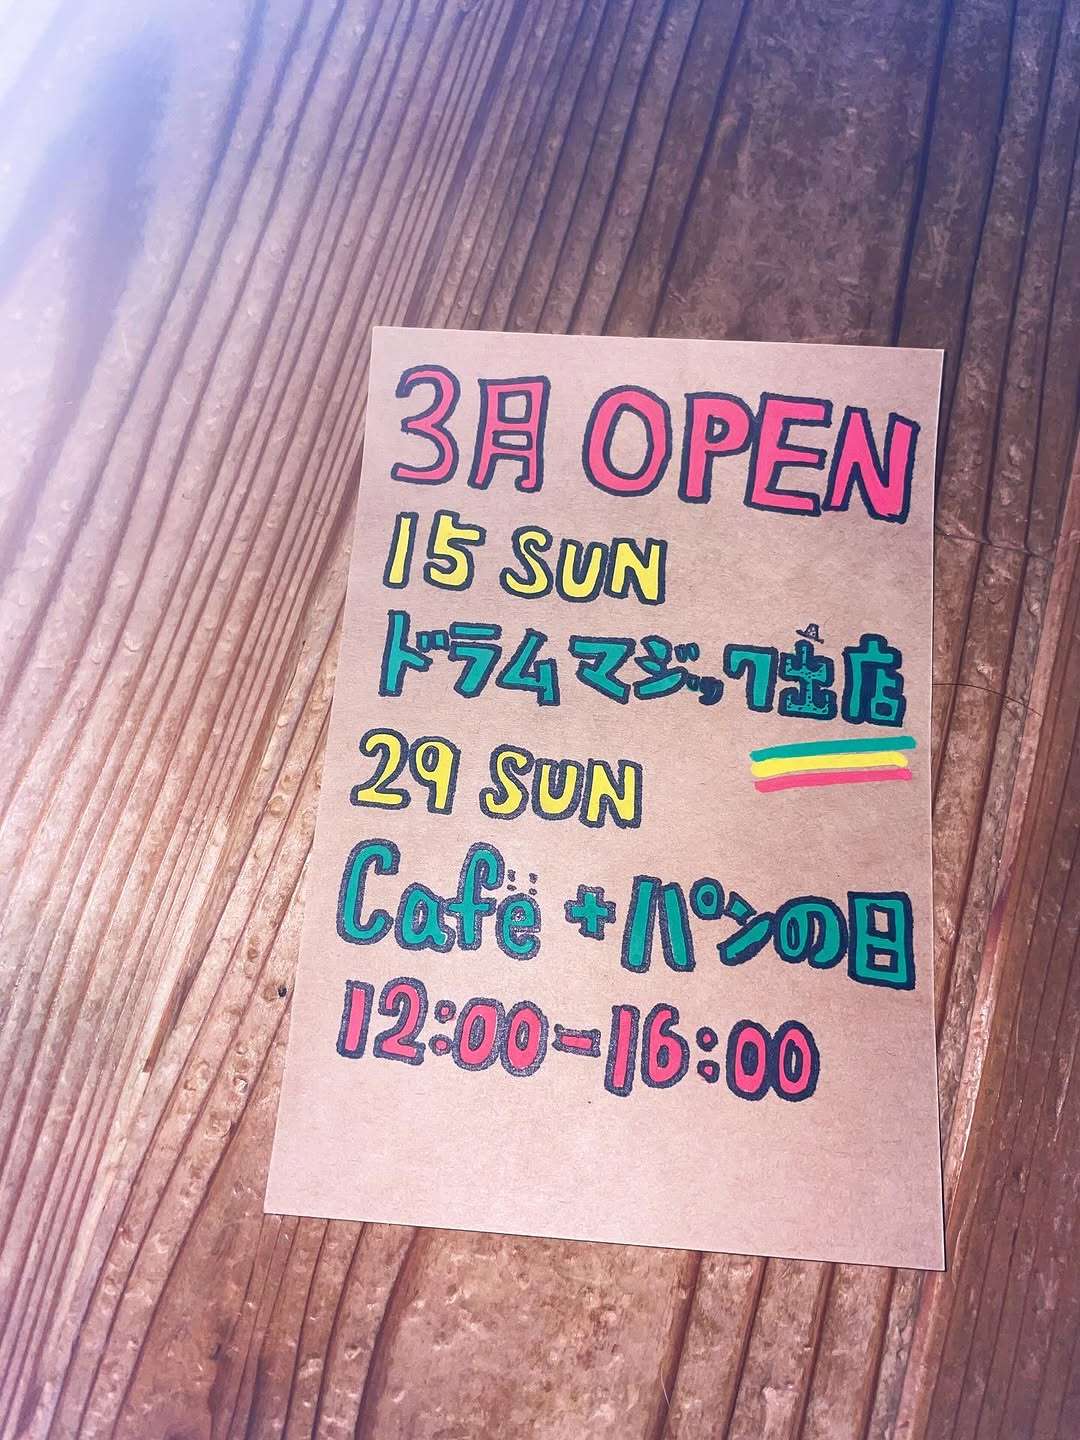 3月 OPEN
15 SUN
ドラムマジック出店
29 SUN
Cafë + パンの日
12:00-16:00